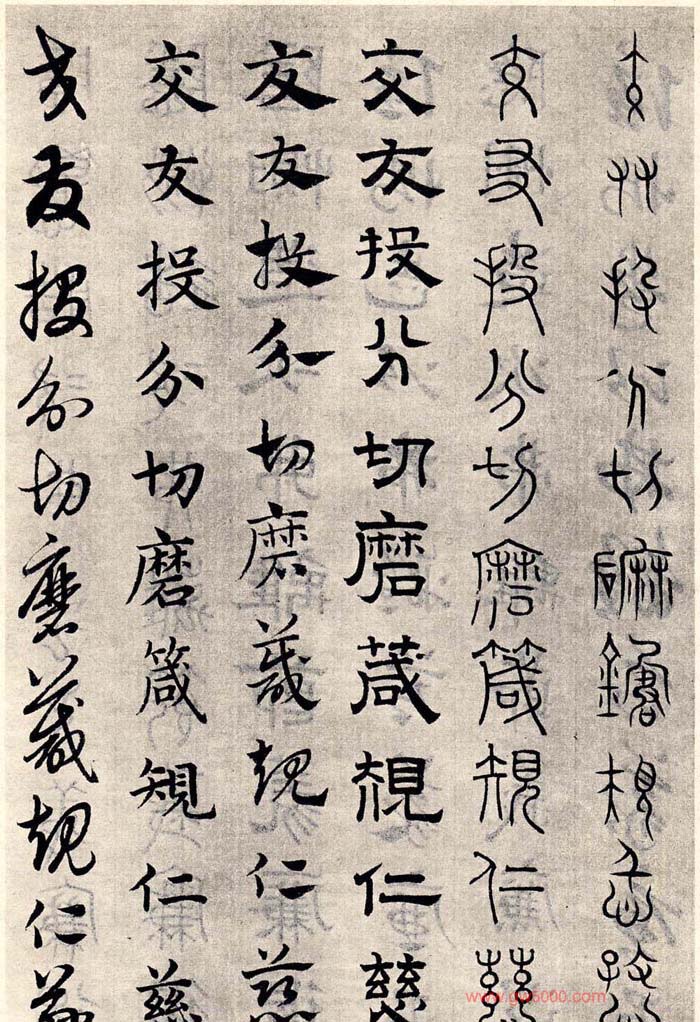 交友投分切磨箴規仁慈
交友投分切磨箴規仁慈
交友投分切磨箴規仁慈
交友投分切磨箴規仁慈
交友投分切磨箴規仁慈
交友投分切磨箴規仁慈